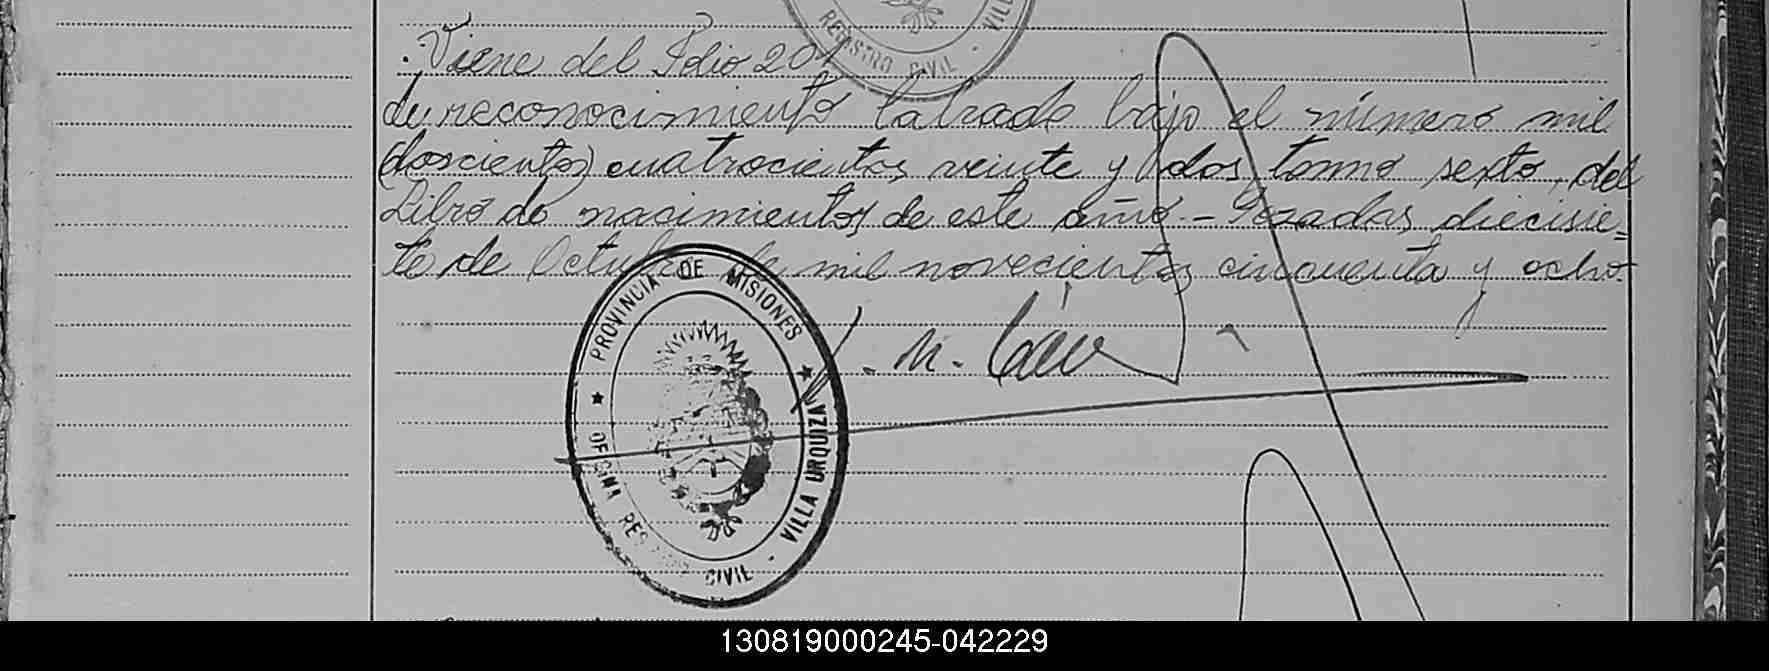 REGISTRO CIVIL - VILL
Viene del Folio 201
de reconocimiento labrado bajo el número mil
(doscientos) cuatrocientos veinte y dos, tomo sexto, del
Libro de nacimientos de este año.- Posadas, diecisie=
te de Octubre de mil novecientos cincuenta y ocho.
PROVINCIA DE MISIONES
OFICINA REGISTRO CIVIL - VILLA URQUIZA
130819000245-042229